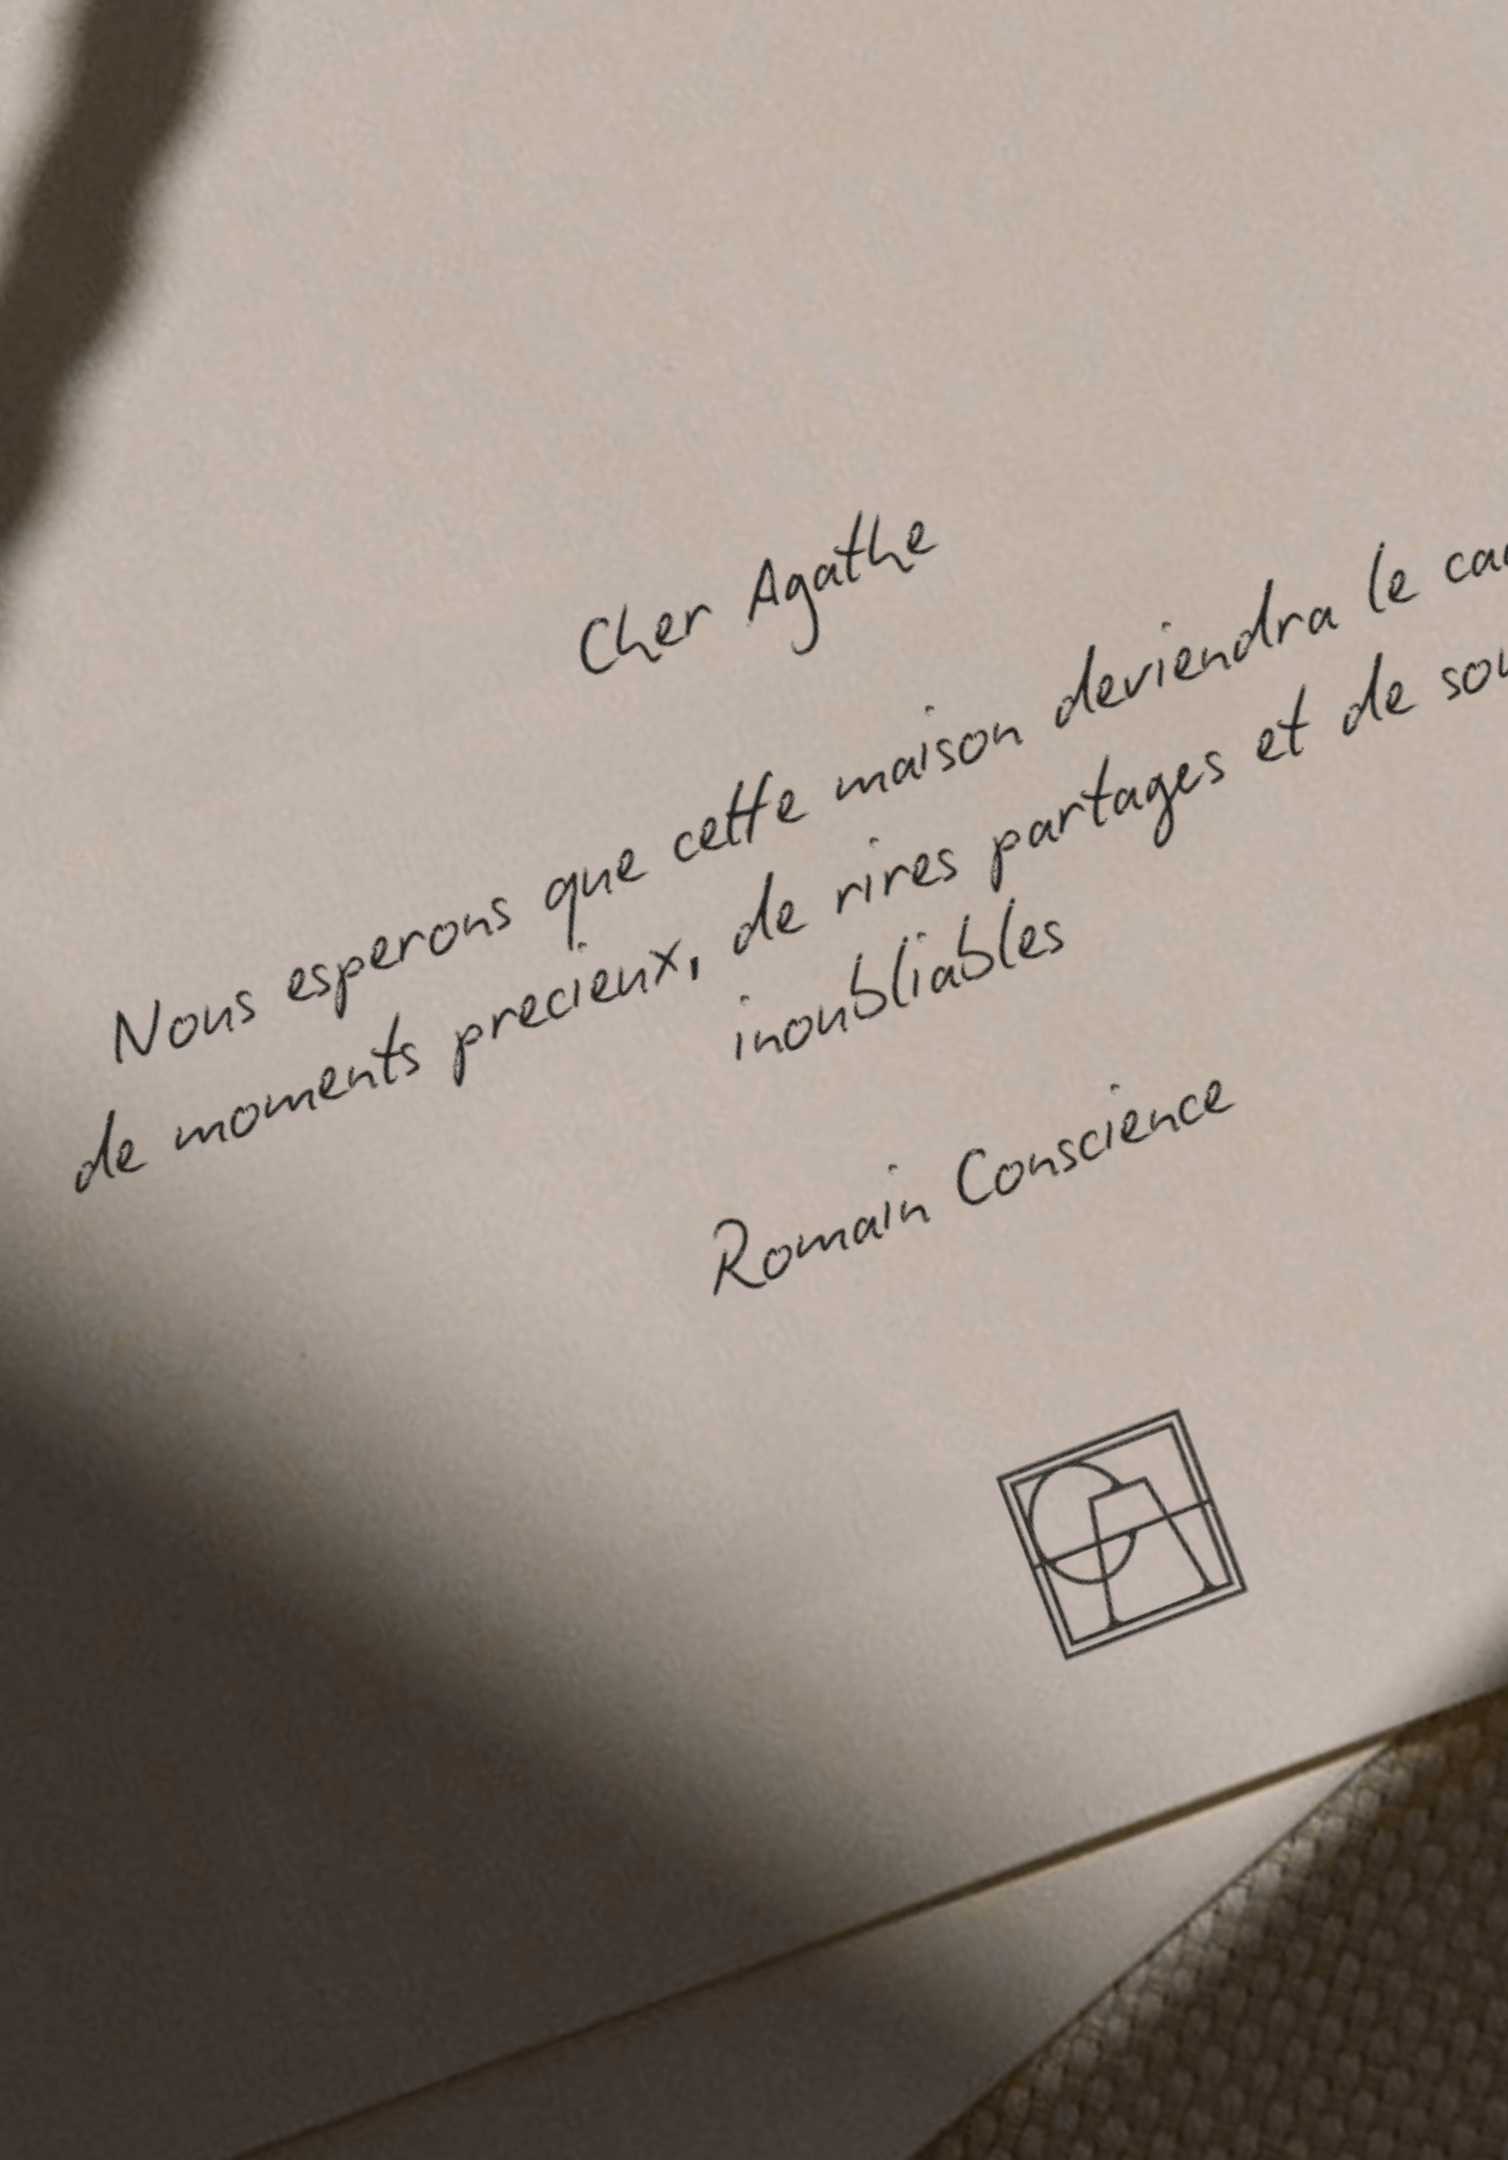 Cher Agathe
Nous esperons que cette maison deviendra le
de moments precieux, de rires partages et de
inoubliables
Romain Conscience